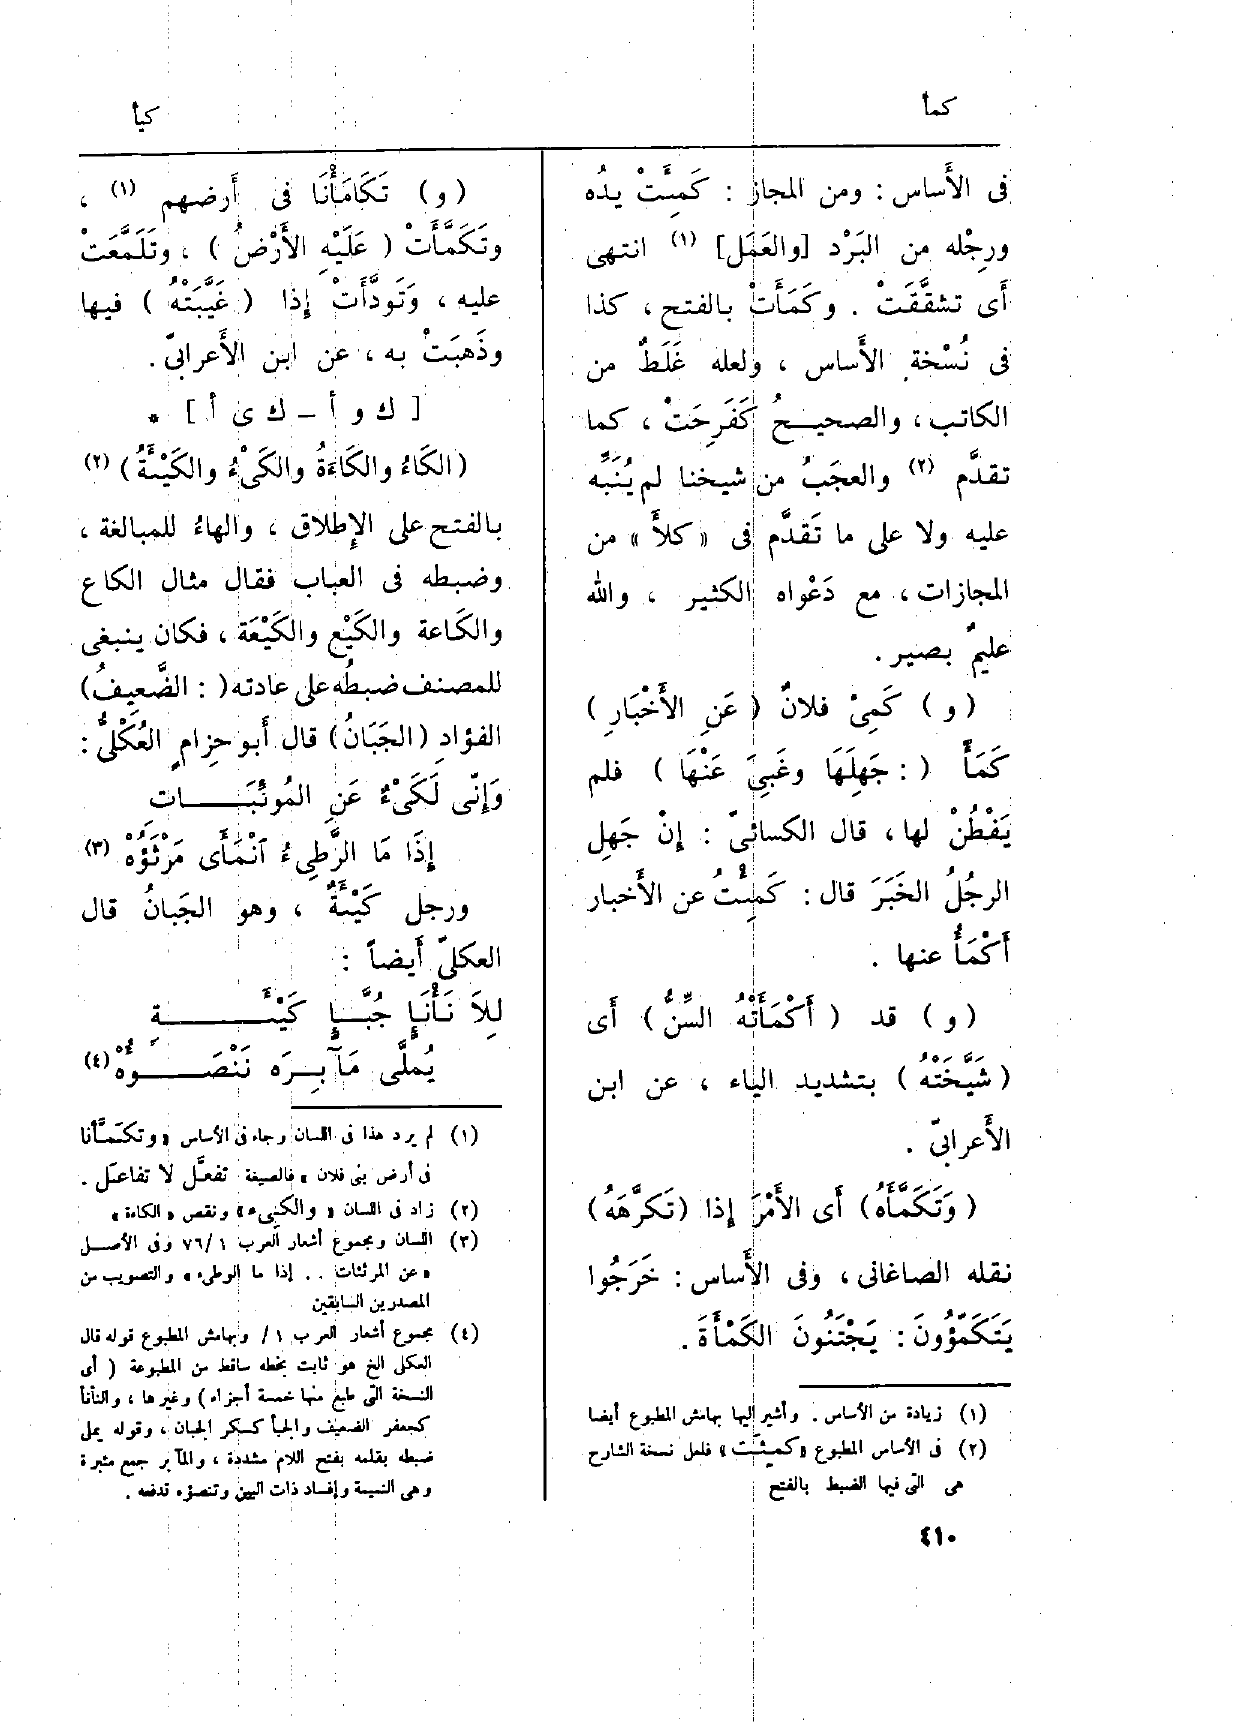 كمأ
كيأ
فى الأَساس : ومن المجاز : كَمِئَتْ يدُه
ورِجْله من البَرْد [والعَمَل] (١) انتهى
أَى تشقَّقَتْ . وكَمَأَتْ بالفتح ، كذا
فى نُسْخة الأَساس ، ولعله غَلَطٌ من
الكاتب ، والصحيـــحُ كَفَرِحَتْ ، كما
تقدَّم (٢) والعجَبُ من شيخنا لم يُنَبِّه
عليه ولا على ما تَقدَّم فى « كلأَ » من
المجازات ، مع دَعْواه الكثير ، والله
عليمٌ بصير .
( و ) كَمِىْ فلانٌ ( عَنِ الأَخْبَارِ )
كَمَأً ( : جَهِلَهَا وغَبِىَ عَنْهَا ) فلم
يَفْطُنْ لها ، قال الكسائىّ : إِنْ جَهِل
الرجُلُ الخَبَرَ قال : كَمِئْتُ عن الأَخبار
أَكْمَأُ عنها .
( و ) قد ( أَكْمَأَتْهُ السِّنُّ ) أَى
( شَيَّخَتْهُ ) بتشديد الياء ، عن ابن
الأَعرابىّ .
( وَتَكَمَّأَهُ ) أَى الأَمْرَ إِذا ( تَكَرَّهَهُ )
نقله الصاغانى ، وفى الأَساس : خَرَجُوا
يَتَكَمَّؤُونَ : يَجْتَنُونَ الكَمْأَةَ .
(١) زيادة من الأساس . وأشير إليها بهامش المطبوع أيضا
(٢) فى الأساس المطبوع « كَمِئَتْ » فلعل نسخة الشارح
هى التى فيها الضبط بالفتح
٤١٠
( و ) تَكَامَأْنَا فى أَرضهم (١) ،
وتَكَمَّأَتْ ( عَلَيْهِ الأَرْضُ ) ، وتَلَمَّعَتْ
عليه ، وَتَودَّأَتْ إِذا ( غَيَّبَتْهُ ) فيها
وذَهبَتْ به ، عن ابن الأَعرابىّ .
[ ك و أ ــ ك ى أ ] *
( الكَاءُ والكَاءَةُ والكَىْءُ والكَيْئَةُ ) (٢)
بالفتح على الإِطلاق ، والهاءُ للمبالغة ،
وضبطه فى العباب فقال مثال الكاع
والكَاعة والكَيْع والكَيْعَة ، فكان ينبغى
للمصنف ضبطُه على عادته ( : الضَّعيفُ )
الفؤادِ ( الجَبَانُ ) قال أَبو حِزامٍ العُكْلىُّ :
وَإِنّى لَكَىْءٌ عَنِ المُوئَبَــــــات
إِذَا مَا الرَّطِىءُ ٱنْمَأَى مَرْثَؤُهْ (٣)
ورجل كَيْئَةٌ ، وهو الجَبانُ قال
العكلىّ أَيضاً :
لِلاَ نَأْنَإٍ جُبَّــإٍ كَيْئَــــــــةٍ
يُمَلَّى مَآبِــرَه نَنْصَــــــؤُهْ (٤)
(١) لم يرد هذا فى اللسان وجاء فى الأساس « وتكمّأنا
فى أرض بنى فلان » فالصيغة تفعّل لا تفاعل .
(٢) زاد فى اللسان « والكَىِء » ونقص « الكاءة »
(٣) اللسان ومجموع أشعار العرب ٧٦/١ وفى الأصــل
« عن المرثئات .. إذا ما الوطىء » والتصويب من
المصدرين السابقين
(٤) مجموع أشعار العرب ١/ وبهامش المطبوع قوله قال
العكلى الخ هو ثابت بخطه ساقط من المطبوعة ( أى
النسخة التى طبع منها خمسة أجزاء ) وغيرها ، والنأنأ
كجعفر الضعيف والجبأ كسكر الجبان ، وقوله يملى
ضبطه بقلمه بفتح اللام مشددة ، والمآبر جمع مئبرة
وهى النميمة وإفساد ذات البين وتنصؤه تدفعه .